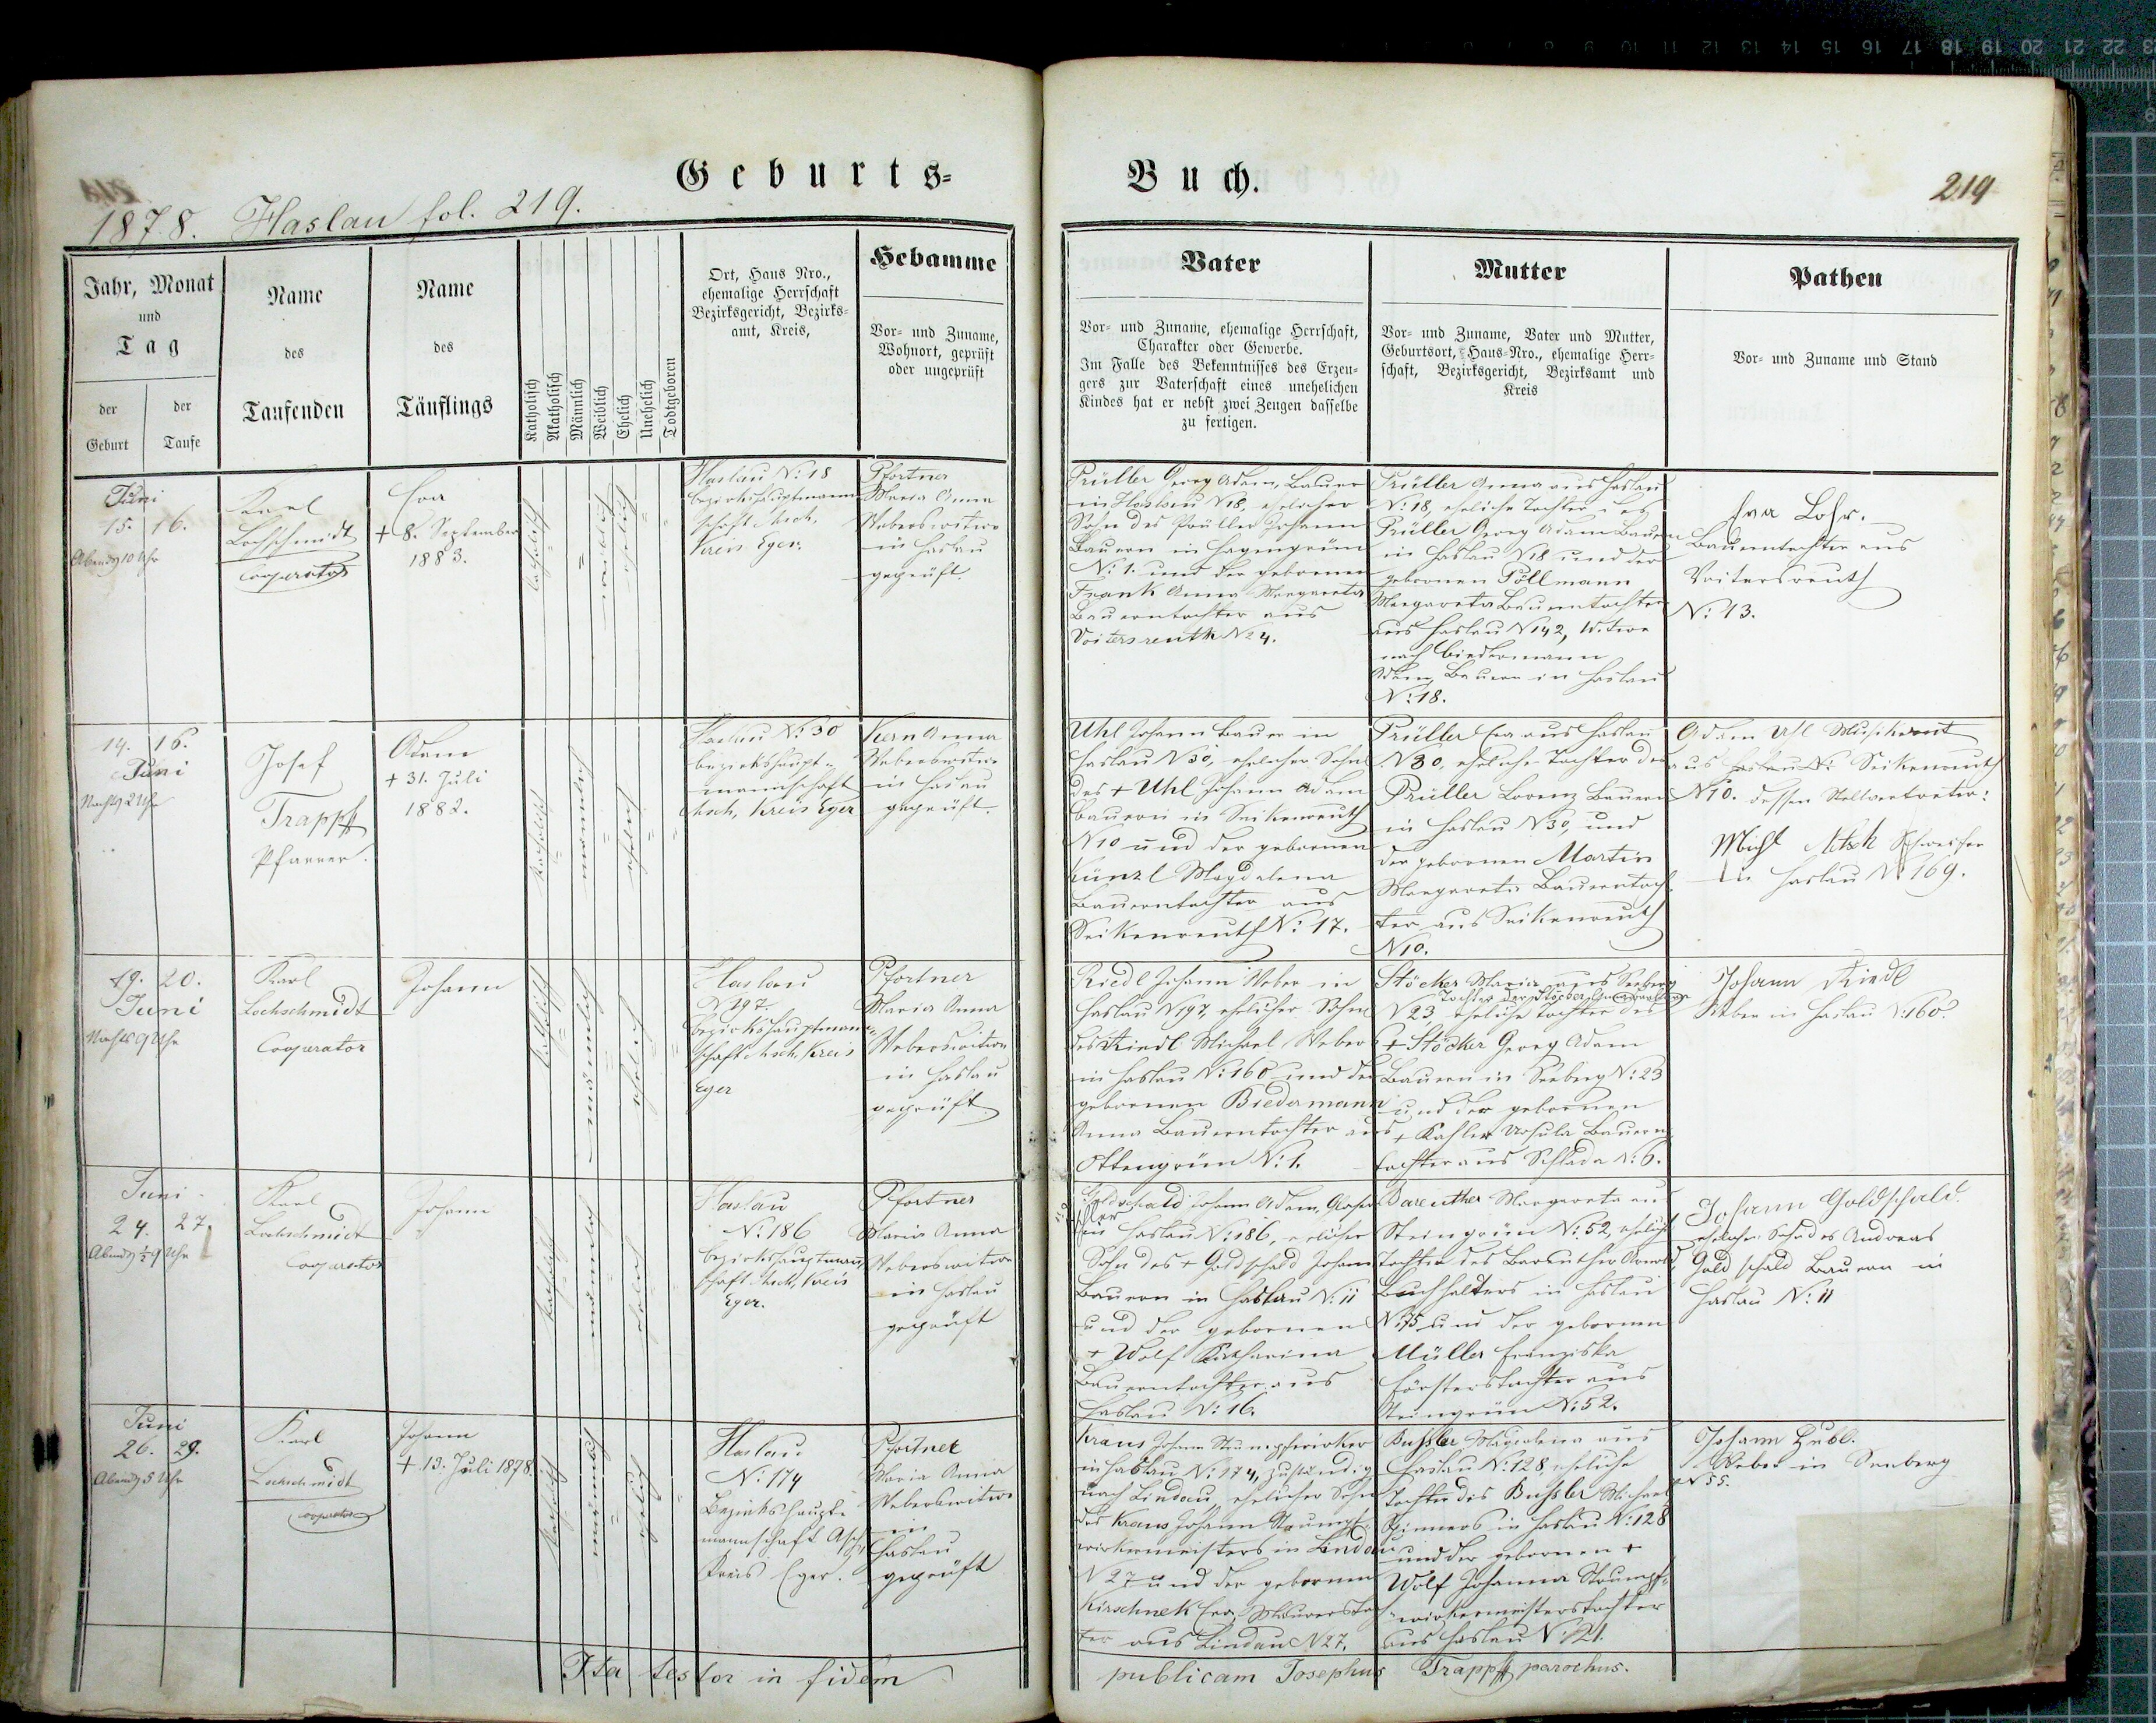 Geburts-
Buch.
219
1878. Haslau fol. 219.
Jahr, Monat
und
Tag
der
Geburt
der
Taufe
Name
des
Taufenden
Name
des
Täuflings
Katholisch
Akatholisch
Männlich
Weiblich
Ehelich
Unehelich
Todtgeboren
Ort, Haus Nro.,
ehemalige Herrschaft
Bezirksgericht, Bezirks-
amt, Kreis,
Hebamme
Vor- und Zuname,
Wohnort, geprüft
oder ungeprüft
Vater
Vor- und Zuname, ehemalige Herrschaft,
Charakter oder Gewerbe.
Im Falle des Bekenntnisses des Erzeu-
gers zur Vaterschaft eines unehelichen
Kindes hat er nebst zwei Zeugen dasselbe
zu fertigen.
Mutter
Vor- und Zuname, Vater und Mutter,
Geburtsort, Haus-Nro., ehemalige Herr-
schaft, Bezirksgericht, Bezirksamt und
Kreis
Pathen
Vor- und Zuname und Stand
Juni
15. 16.
Abends 10 Uhr
Karl
Lochschmidt
Cooperator
Eva
+ 8. September
1883.
katholisch
weiblich
ehelich
Haslau N: 18
Bezirkshauptmann-
schaft Asch,
Kreis Eger.
Pfortner
Maria Anna
Weberswitwe
in Haslau
geprüft.
Prüller Georg Adam, Bauer
in Haslau N 18, ehelicher
Sohn des Prüller Johann
Bauern in Hagengrün
N: 1. und der gebornen
Frank Anna Margareta
Bauerntochter aus
Voitersreuth N 4.
Prüller Anna aus Haslau
N: 18, eheliche Tochter des
Prüller Georg Adam Bauern
in Haslau N 18 und der
gebornen Pöllmann
Margareta Bauerntochter
aus Haslau N 142, Witwe
nach Biedermann
Adam, Bauern in Haslau
N: 18.
Eva Lohr.
Bauerntochter aus
Voitersreuth
N: 13.
14. 16.
Juni
Nachts 2 Uhr
Josef
Trappf
Pfarrer.
Adam
+ 31. Juli
1882.
katholisch
männlich
ehelich
Haslau N: 30
Bezirkshaupt-
mannschaft
Asch, Kreis Eger
Kern Anna
Weberswitwe
in Haslau
geprüft.
Uhl Johann Bauer in
Haslau N 30, ehelicher Sohn
des + Uhl Johann Adam
Bauern in Seikenreuth
N 10 und der gebornen
Künzl Magdalena
Bauerntochter aus
Seikenreuth N: 17.
Prüller Eva aus Haslau
N 30, eheliche Tochter des
Prüller Lorenz Bauern
in Haslau N 30, und
der gebornen Martin
Margareta Bauerntoch-
ter aus Seikenreuth
N 10.
Adam Uhl Musikant
aus Seikenreuth
N 10. dessen Stellvertreter:
Michl
in Haslau N 169.
19. 20.
Juni
Nachts 9 Uhr
Karl
Lochschmidt
Cooperator
Johann
katholisch
männlich
ehelich
Haslau
N 197.
Bezirkshauptmann-
schaft Asch, Kreis
Eger
Pfortner
Maria Anna
Weberswitwe
in Haslau
geprüft
Riedl Johann Weber in
Haslau N 197, ehelicher Sohn
des Riedl Michael Weber
in Haslau N: 160 und der
gebornen Biedermann
Anna Bauerntochter aus
Ottengrün N: 1.
Stöcker Maria aus Seeberg
N 23 eheliche Tochter des
+ Stöcker Georg Adam
Bauern in Seeberg N: 23
und der gebornen
+ Kahler Ursula Bauern-
tochter aus Schlada N: 6.
Johann Riedl
Weber in Haslau N: 160.
Juni
24. 27.
Abends ½ 9 Uhr
Karl
Lochschmidt
Cooperator
Johann
katholisch
männlich
ehelich
Haslau
N: 186
Bezirkshauptmann-
schaft Asch, Kreis
Eger.
Pfortner
Maria Anna
Weberswitwe
in Haslau
geprüft
Goldschald Johann Adam,
in Haslau N: 186, ehelicher
Sohn des + Goldschald Johann
Bauern in Haslau N: 11
und der gebornen
+ Wolf Katharina
Bauerntochter aus
Haslau N: 16.
Bareuther Margareta aus
Steingrün N: 52, eheliche
Tochter des Bareuther
Buchhalters in Haslau
N: 75 und der gebornen
Müller Franziska
Försterstochter aus
Steingrün N: 52.
Johann Goldschald
ehelicher Sohn des Andreas
Goldschald Bauern in
Haslau N: 11
Juni
26. 29.
Abends 5 Uhr
Karl
Lochschmidt
Cooperator
Johann
+ 13. Juli 1878.
katholisch
männlich
ehelich
Haslau
N: 174
Bezirkshaupt-
mannschaft Asch,
Kreis Eger.
Pfortner
Maria Anna
Weberswitwe
in
Haslau
geprüft
Kraus Johann Strumpfwirker
in Haslau N: 174, zuständig
nach Lindau, ehelicher Sohn
des Kraus Johann Strumpf-
wirkermeisters in Lindau
N 27 und der gebornen
Kirschnek Eva, Maurerstoch-
ter aus Lindau N 27.
Bußler Magdalena aus
Haslau N: 128, eheliche
Tochter des Bußler Michael
Spinners in Haslau N: 128
und der gebornen +
Wolf Johanna Strumpf-
wirkermeisterstochter
aus Haslau N: 121.
Johann Hubl.
Weber in Seeberg
N 55.
Ita testor in fidem
publicam Josephus Trappf parochus.